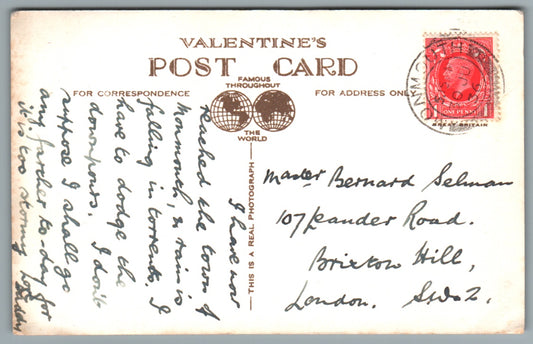 VALENTINE'S
POST CARD
FAMOUS
THROUGHOUT
THE
WORLD
FOR CORRESPONDENCE
FOR ADDRESS ONLY
I have now
reached the town of
Monmouth, & rain is
falling in torrents. I
have to dodge the
downpours. I don't
suppose I shall go
any further to-day for
it is too stormy
Daddy
THIS IS A REAL PHOTOGRAPH
Master Bernard Selman
107 Leander Road.
Brixton Hill,
London. S.W.2.
ONE PENNY
GREAT BRITAIN